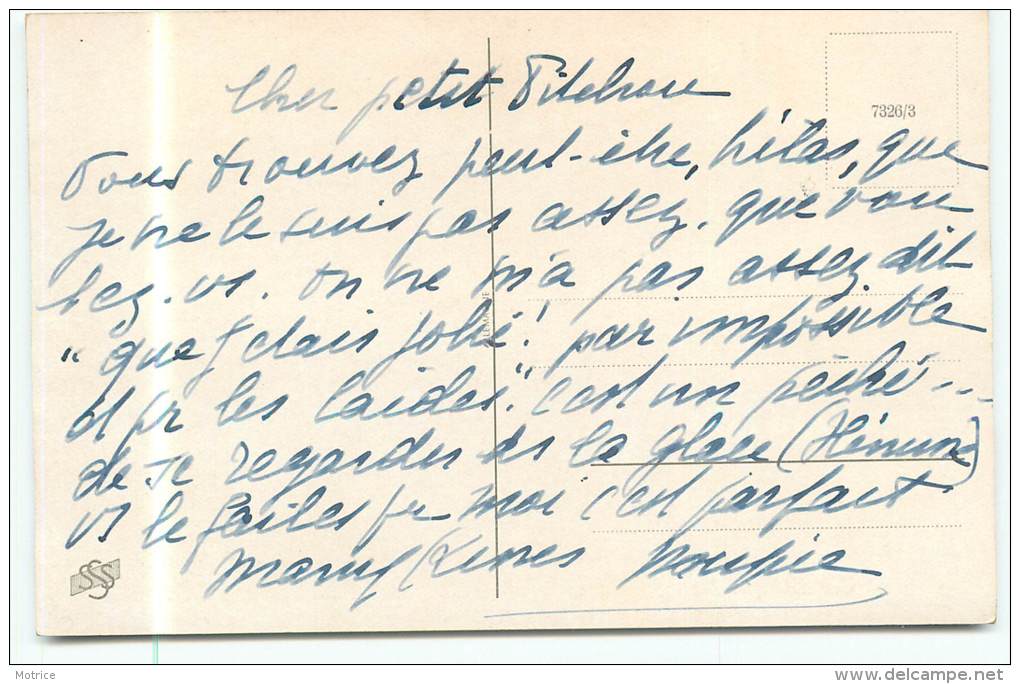 Cher petit Pitchou
7326/3
Vous trouvez peut-être, hélas, que
je ne le suis pas assez. que vou
lez-vs. on ne m'a pas assez dit
"que j'étais jolie! par impossible
et pr les laides". c'est un péché ...
de se regarder ds la glace
vs le faites pr moi c'est parfait
SSS
Motrice
http://www.delcampe.net